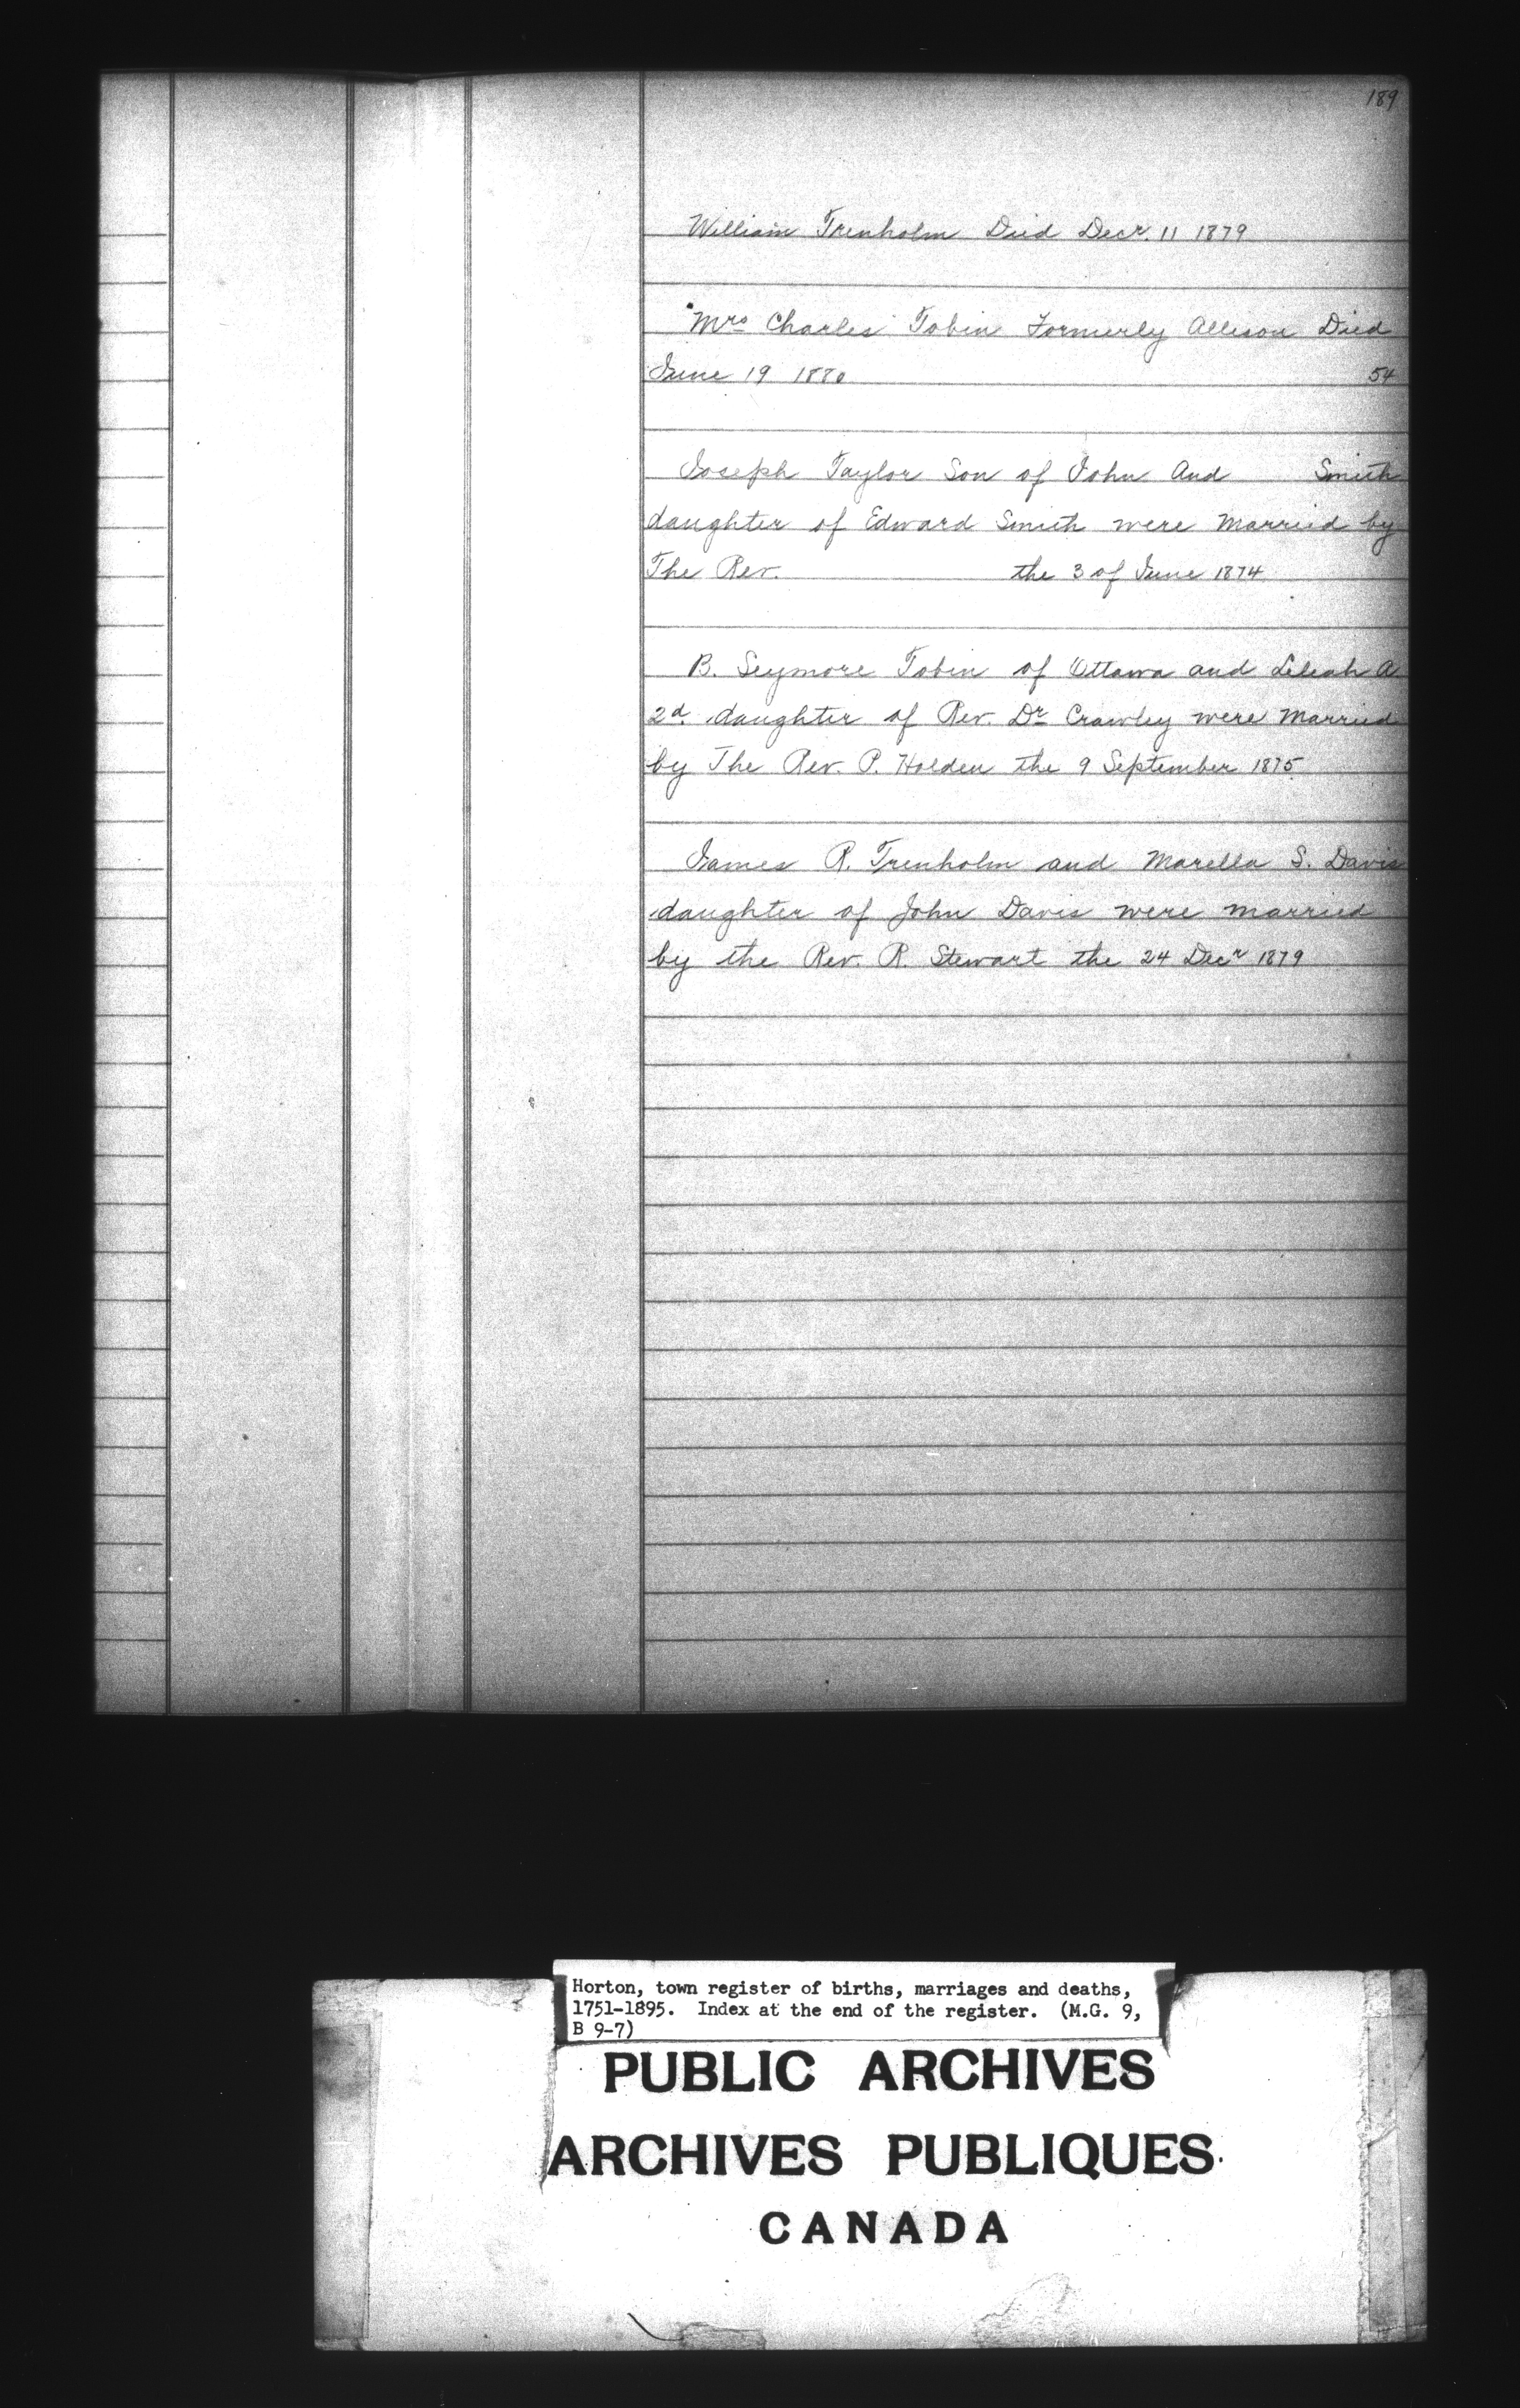 189
William Trenholm Died Decr. 11 1879
Mrs Charles Tobin Formerly Allison Died
June 19 1880 54
Joseph Taylor Son of John And Smith
daughter of Edward Smith were Married by
The Rev. the 3 of June 1874
B. Seymore Tobin of Ottawa and Lileah A
2d. daughter of Rev. Dr Crawley were Married
by The Rev. P. Holden the 9 September 1875
James R. Trenholm and Marella S. Davis
daughter of John Davis were married
by the Rev. R. Stewart the 24 Decr 1879
Horton, town register of births, marriages and deaths,
1751-1895. Index at the end of the register. (M.G. 9,
B 9-7)
PUBLIC ARCHIVES
ARCHIVES PUBLIQUES
CANADA